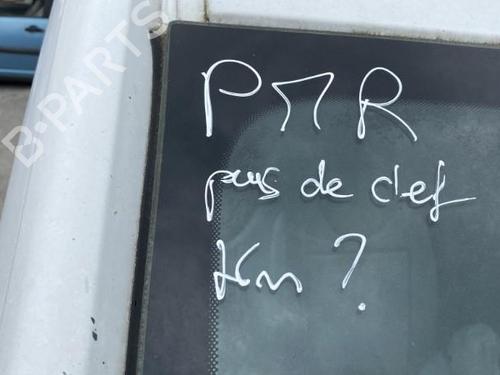 PMR
pas de clef
Km ?
B-PARTS